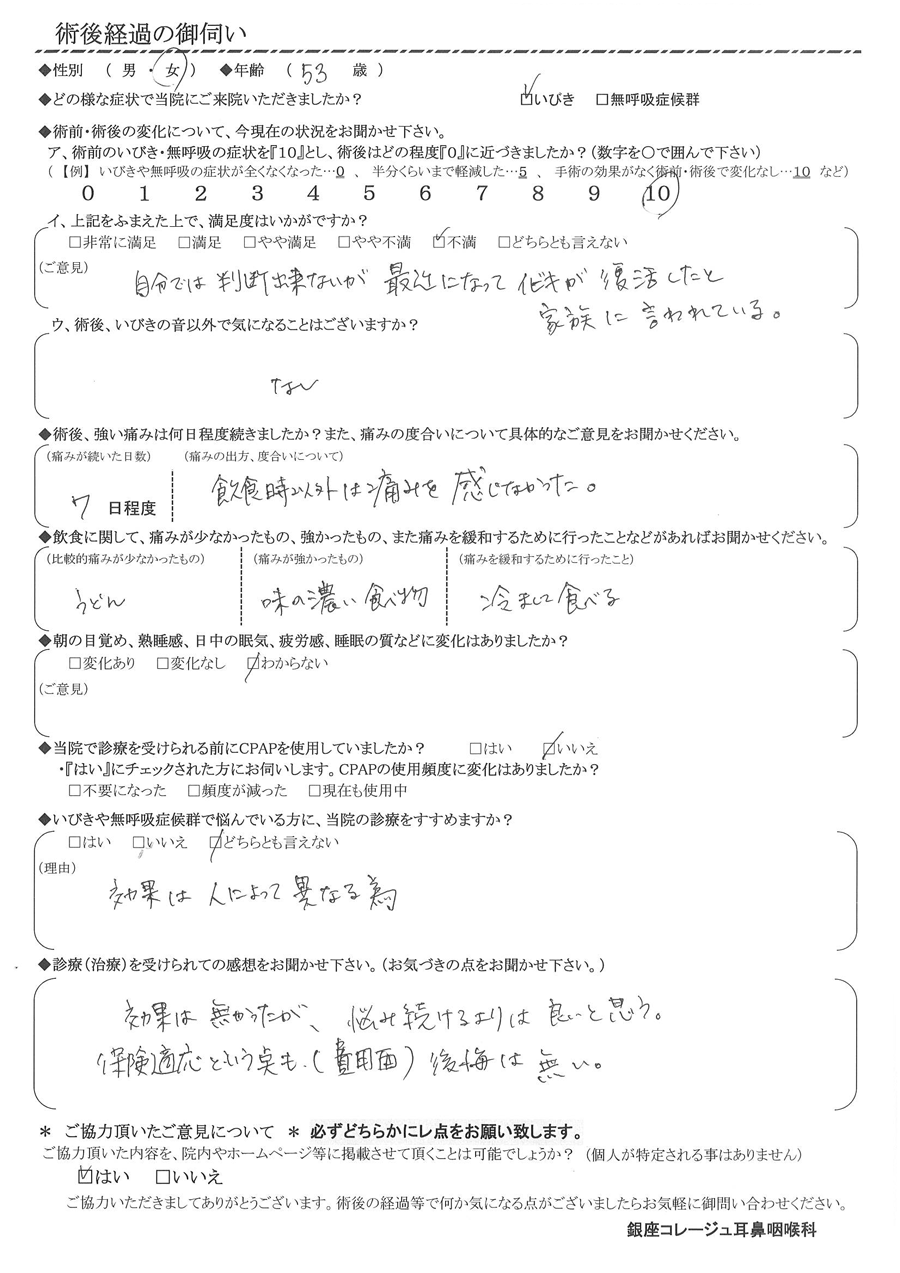 術後経過の御伺い
◆性別 ( 男 ・ 女 ) ◆年齢 ( 53 歳 )
◆どの様な症状で当院にご来院いただきましたか? ☑いびき □無呼吸症候群
◆術前・術後の変化について、今現在の状況をお聞かせ下さい。
ア、術前のいびき・無呼吸の症状を『10』とし、術後はどの程度『0』に近づきましたか?(数字を〇で囲んで下さい)
(【例】いびきや無呼吸の症状が全くなくなった…0 、 半分くらいまで軽減した…5 、 手術の効果がなく術前・術後で変化なし…10 など)
0 1 2 3 4 5 6 7 8 9 10
イ、上記をふまえた上で、満足度はいかがですか?
□非常に満足 □満足 □やや満足 □やや不満 ☑不満 □どちらとも言えない
(ご意見)
自分では判断出来ないが 最近になって イビキが 復活したと
家族に言われている。
ウ、術後、いびきの音以外で気になることはございますか?
なし
◆術後、強い痛みは何日程度続きましたか?また、痛みの度合いについて具体的なご意見をお聞かせください。
(痛みが続いた日数) (痛みの出方、度合いについて)
7 日程度 飲食時以外は痛みを感じなかった。
◆飲食に関して、痛みが少なかったもの、強かったもの、また痛みを緩和するために行ったことなどがあればお聞かせください。
(比較的痛みが少なかったもの) (痛みが強かったもの) (痛みを緩和するために行ったこと)
うどん 味の濃い食べ物 冷まして食べる
◆朝の目覚め、熟睡感、日中の眠気、疲労感、睡眠の質などに変化はありましたか?
□変化あり □変化なし ☑わからない
(ご意見)
◆当院で診療を受けられる前にCPAPを使用していましたか? □はい ☑いいえ
・『はい』にチェックされた方にお伺いします。CPAPの使用頻度に変化はありましたか?
□不要になった □頻度が減った □現在も使用中
◆いびきや無呼吸症候群で悩んでいる方に、当院の診療をすすめますか?
□はい □いいえ ☑どちらとも言えない
(理由)
効果は人によって異なる為
◆診療(治療)を受けられての感想をお聞かせ下さい。(お気づきの点をお聞かせ下さい。)
効果は無かったが、悩み続けるよりは良いと思う。
保険適応という点も、(費用面)後悔は無い。
* ご協力頂いたご意見について * 必ずどちらかにレ点をお願い致します。
ご協力頂いた内容を、院内やホームページ等に掲載させて頂くことは可能でしょうか?(個人が特定される事はありません)
☑はい □いいえ
ご協力いただきましてありがとうございます。術後の経過等で何か気になる点がございましたらお気軽に御問い合わせください。
銀座コレージュ耳鼻咽喉科